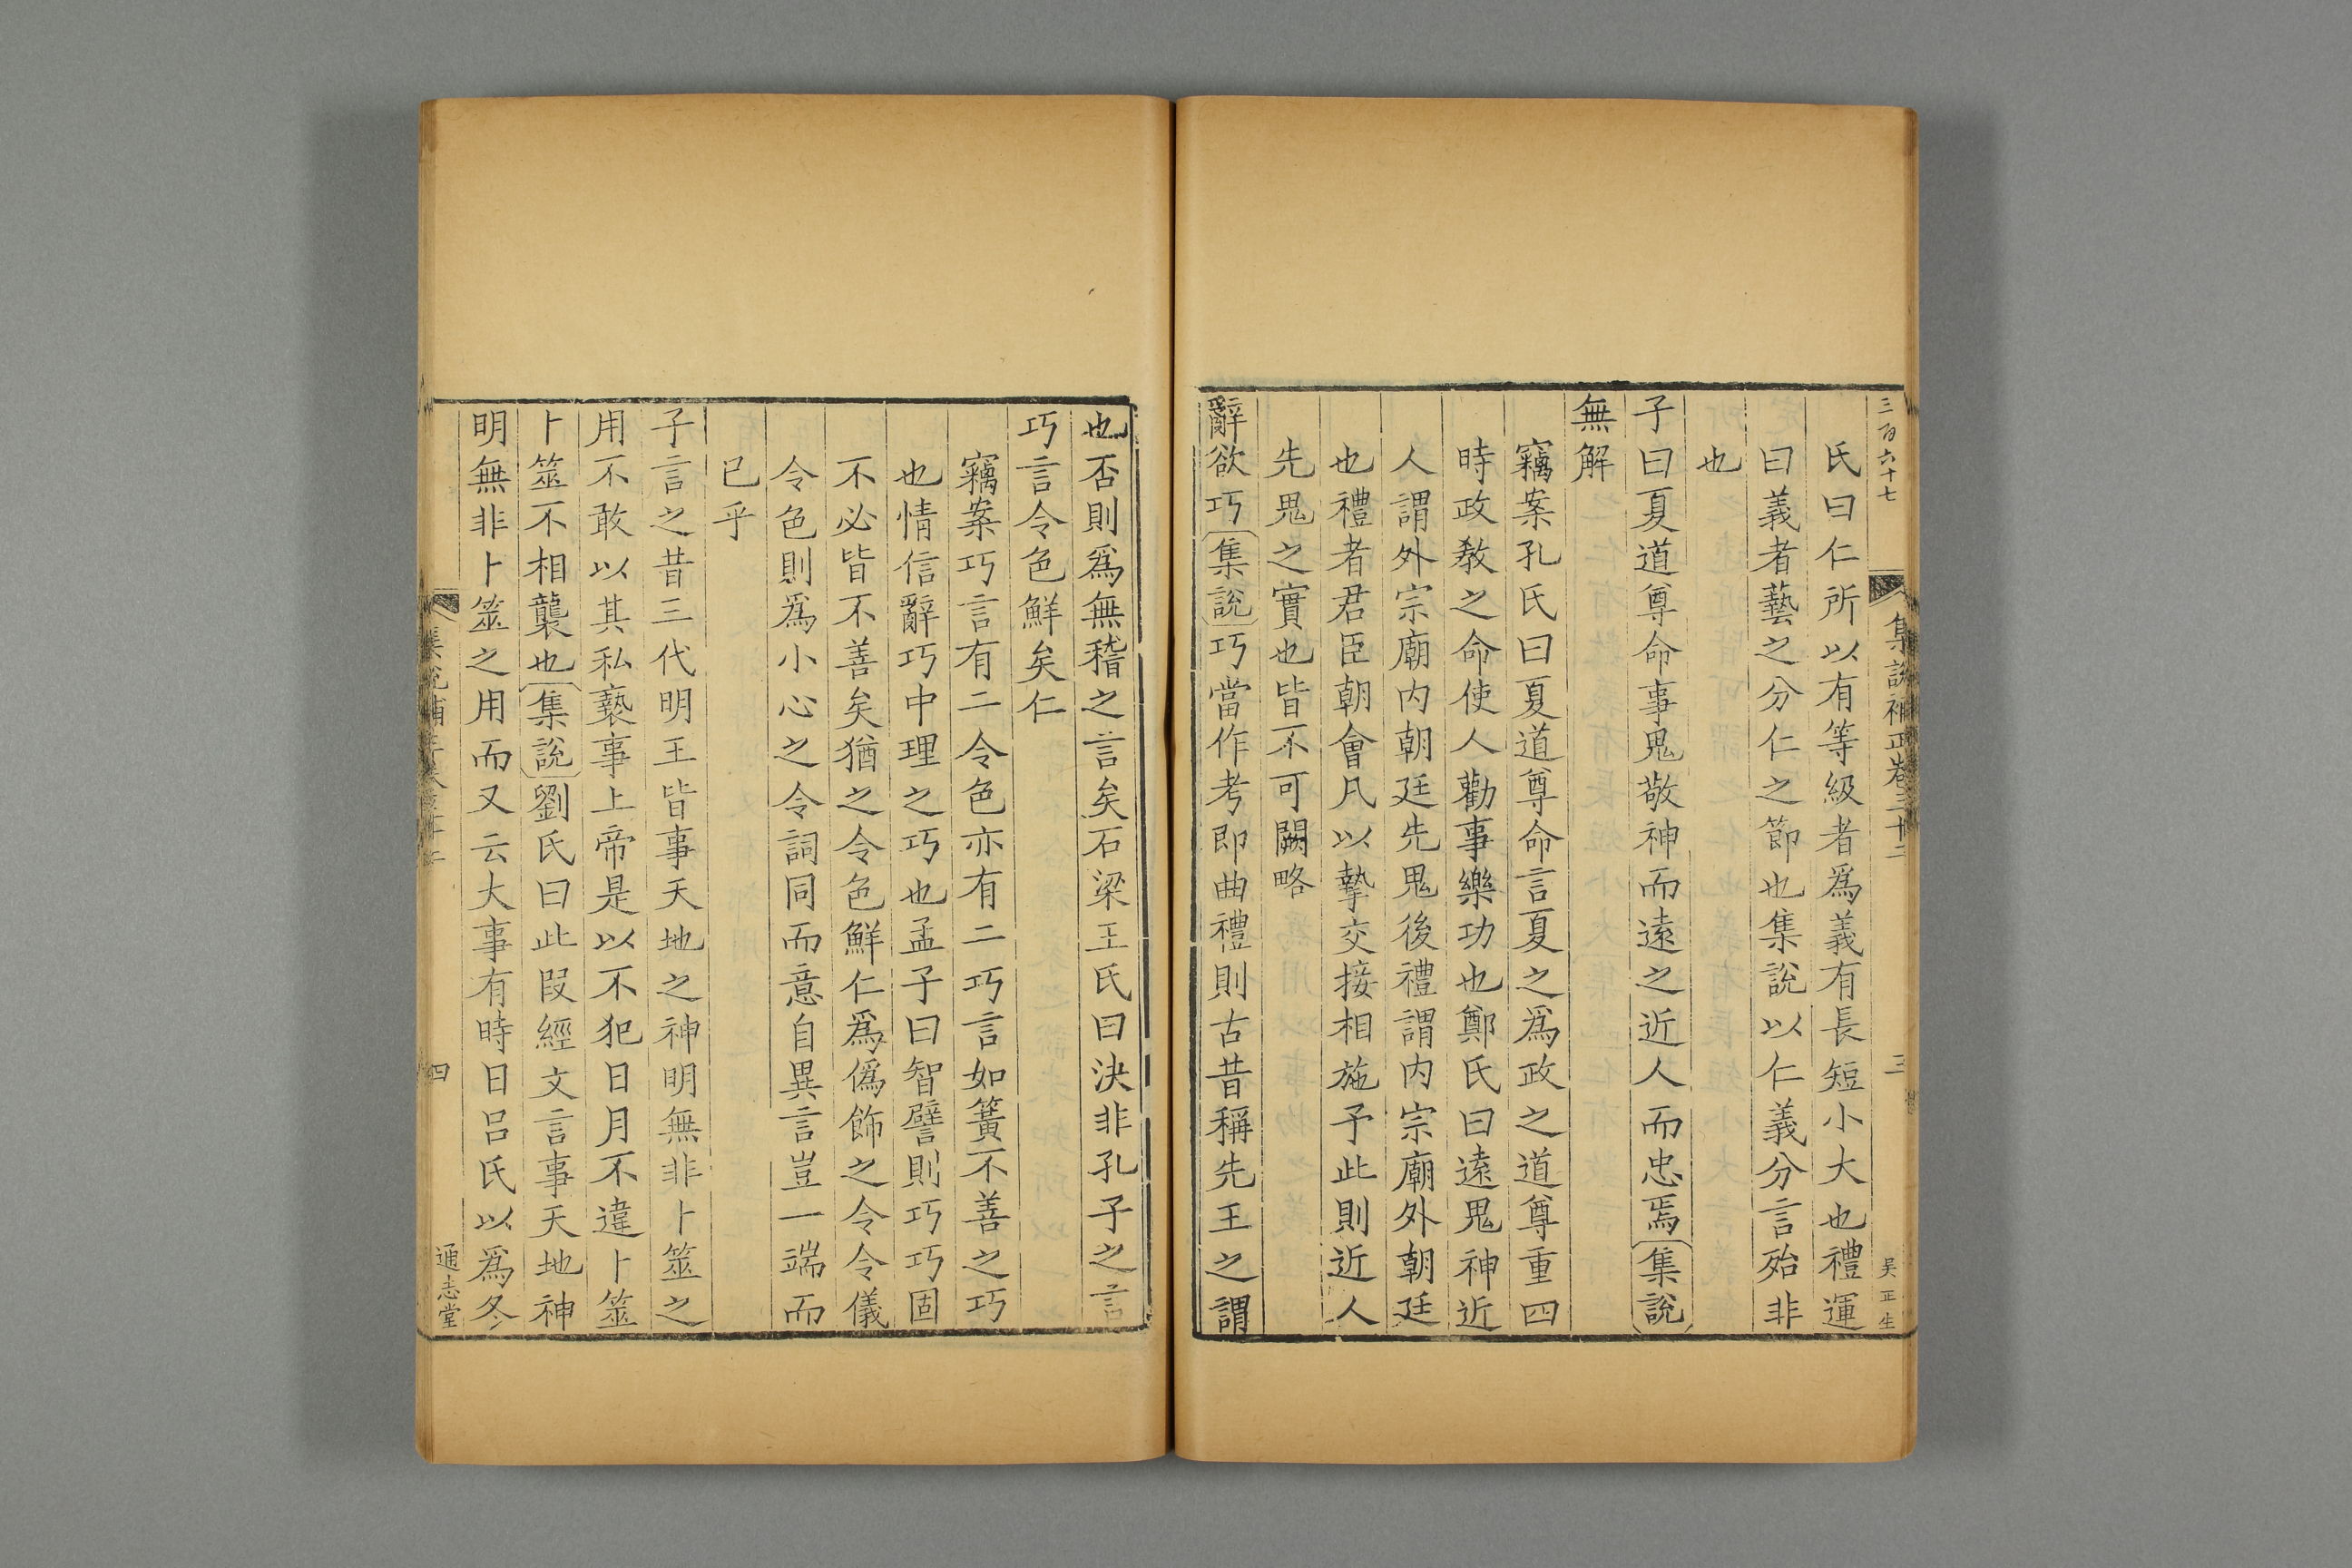 三百六十七
集說補正卷三十二
三
吴正生
氏曰仁所以有等級者爲義有長短小大也禮運
曰義者藝之分仁之節也集說以仁義分言殆非
也
子曰夏道尊命事鬼敬神而遠之近人而忠焉集說
無解
竊案孔氏曰夏道尊命言夏之爲政之道尊重四
時政教之命使人勸事樂功也鄭氏曰遠鬼神近
人謂外宗廟内朝廷先鬼後禮謂内宗廟外朝廷
也禮者君臣朝會凡以摯交接相施予此則近人
先鬼之實也皆不可闕略
辭欲巧集說巧當作考即曲禮則古昔稱先王之謂
也否則爲無稽之言矣石梁王氏曰決非孔子之言
巧言令色鮮矣仁
竊案巧言有二令色亦有二巧言如簧不善之巧
也情信辭巧中理之巧也孟子曰智譬則巧巧固
不必皆不善矣猶之令色鮮仁爲僞飾之令令儀
令色則爲小心之令詞同而意自異言豈一端而
已乎
子言之昔三代明王皆事天地之神明無非卜筮之
用不敢以其私褻事上帝是以不犯日月不違卜筮
卜筮不相襲也集說劉氏曰此叚經文言事天地神
明無非卜筮之用而又云大事有時日呂氏以爲冬
四
通志堂